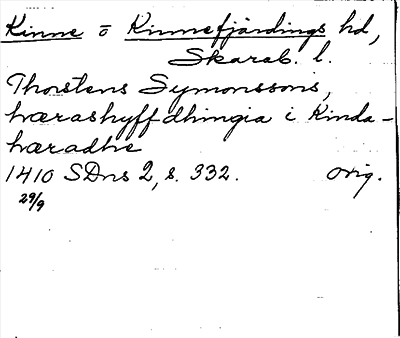 Kinne o Kinnefjärdings hd,
Skarab. l.
Thorstens Symonssons,
hærashyffdhingia i Kinda-
hæradhe
1410 SDns 2, s. 332. orig.
29/9